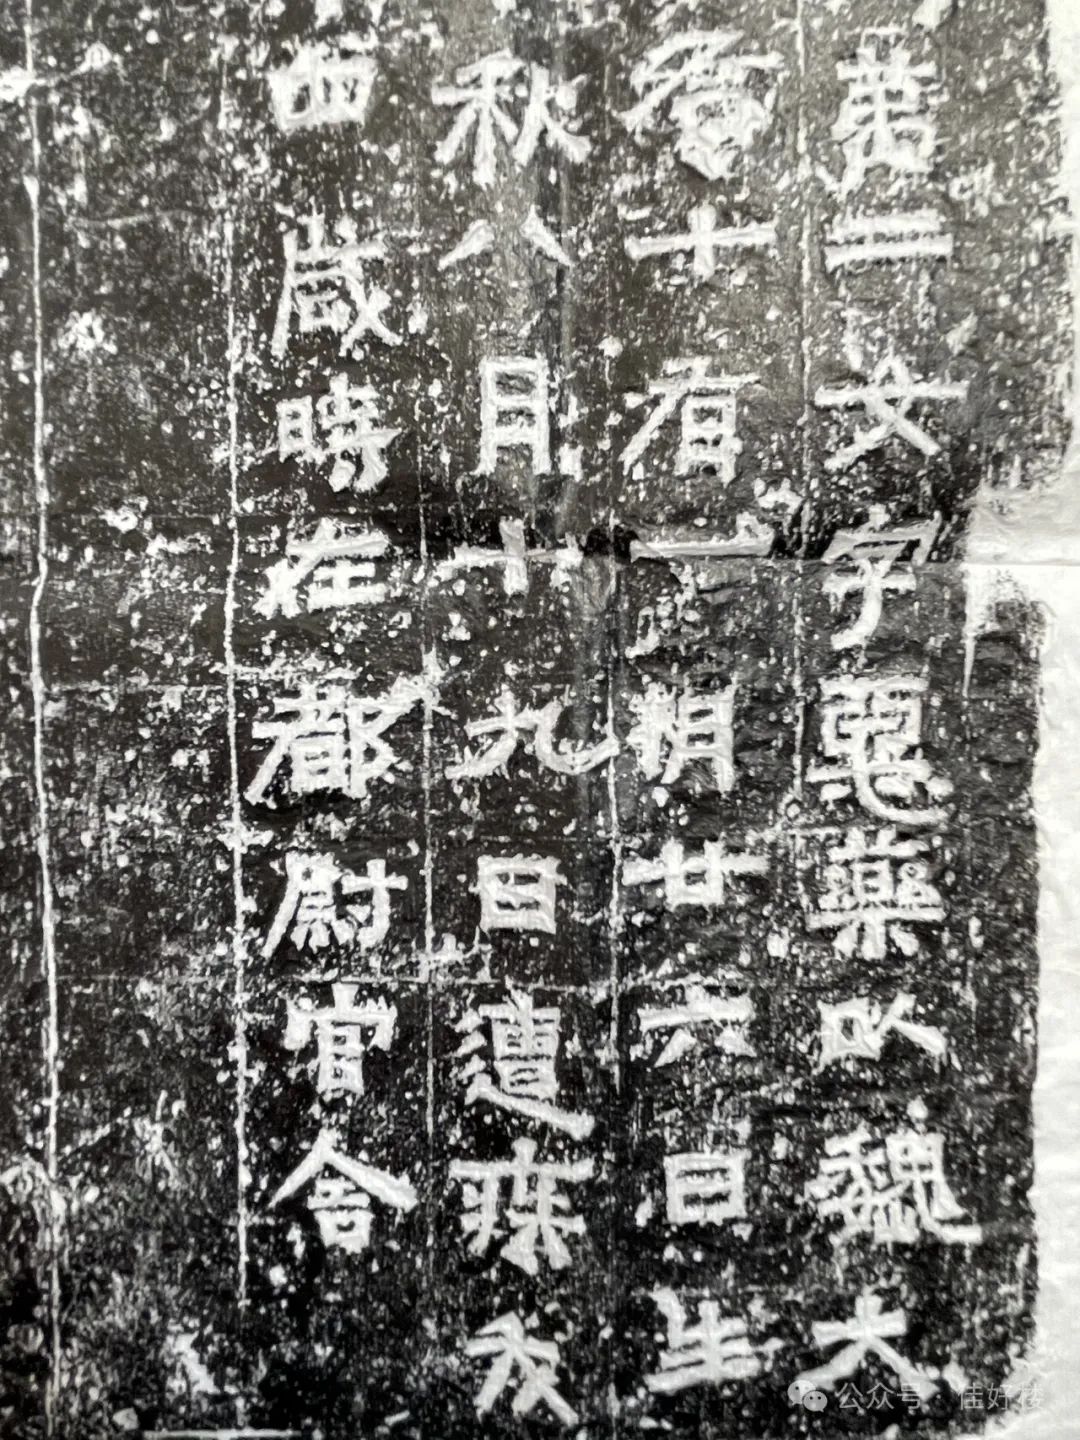 第二女字惠藥以魏大
十有一廿六日生
秋八月十九日遭
歲時在都尉官舍
公众号·佳好楼